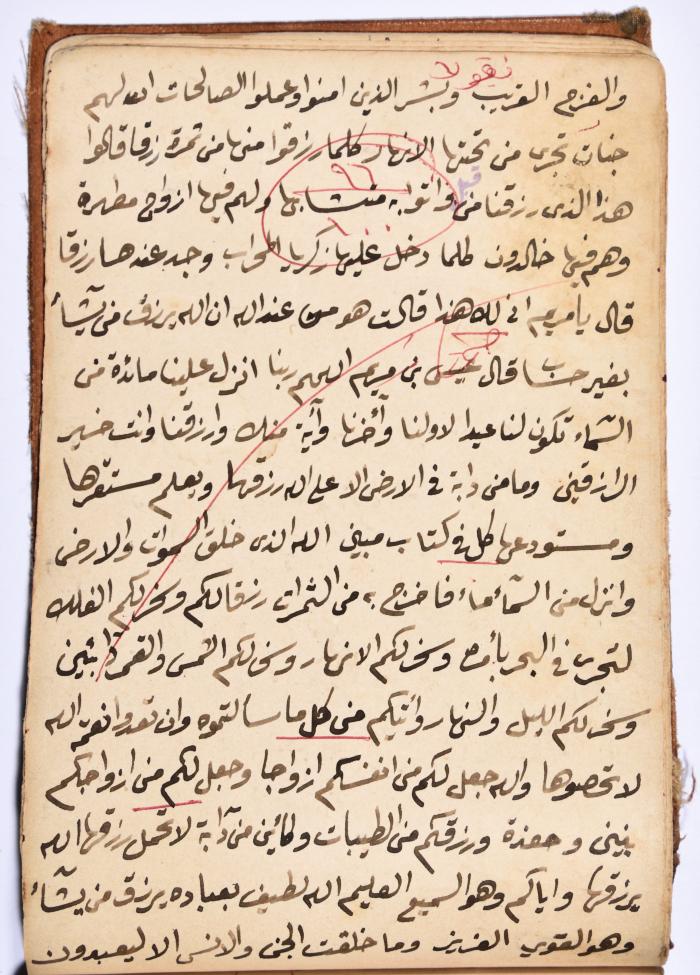 نقولا
والفرج القريب وبشر الذين امنوا وعملوا الصالحات ان لهم
جنات تجرى من تحتها الانهار كلما رزقوا منها من ثمرة رزقا قالوا
٩٦
هذا الذى رزقنا من قبل واتوا به متشابها ولهم فيها ازواج مطهرة
١٠٠
وهم فيها خالدون كلما دخل عليها زكريا المحراب وجد عندها رزقا
قال يامريم انى لك هذا قالت هو من عند الله ان الله يرزق من يشآء
بغير حساب قال عيسى بن مريم اللهم ربنا انزل علينا مائدة من
السمآء تكون لنا عيدا لاولنا وأخرنا وآية منك وارزقنا وانت خير
الرازقين وما من دابة فى الارض الا على الله رزقها ويعلم مستقرها
ومستودعها كل فى كتاب مبين الله الذى خلق السموات والارض
وانزل من السمآء مآء فاخرج به من الثمرات رزقا لكم وسخر لكم الفلك
لتجرى فى البحر بأمره وسخر لكم الانهار وسخر لكم الشمس والقمر دائبين
وسخر لكم الليل والنهار وأتيكم من كل ما سألتموه وان تعدوا نعمة الله
لا تحصوها والله جعل لكم من انفسكم ازواجا وجعل لكم من ازواجكم
بنين وحفدة ورزقكم من الطيبات وكأين من دآبة لا تحمل رزقها الله
يرزقها واياكم وهو السميع العليم الله لطيف بعباده يرزق من يشآء
وهو القوي العزيز وما خلقت الجن والانس الا ليعبدون